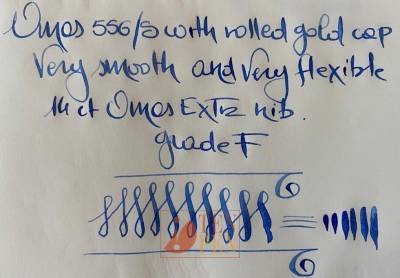 Omas 556/S with rolled gold cap
Very smooth and very flexible
14 ct Omas Extra nib.
grade F